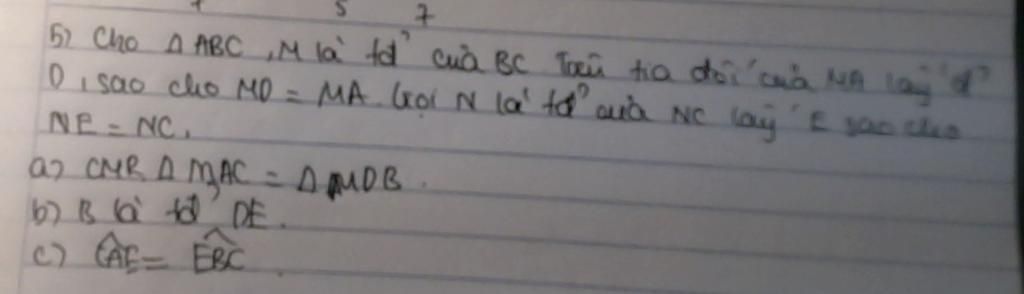 5 7
5) Cho Δ ABC, M là tđ' của BC Trên tia đối của MA lấy đ'
D, sao cho MD = MA. Gọi N là tđ' của NC lấy E sao cho
NE = NC.
a) CMR Δ MAC = Δ MDB.
b) B là tđ' DE.
c) CAE = EBC